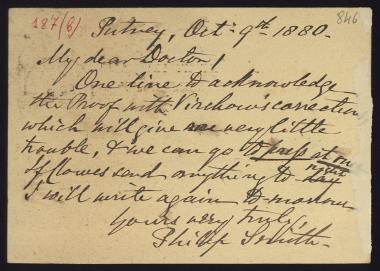 187(6)
846
Putney, Oct. 9th 1880.
My dear Doctor,
One line to acknowledge
the Proof with Virchow's correction
which will give me very little
trouble, & we can go to press at once
if Clowes send anything to-night
I will write again to-morrow
Yours very truly,
Philip Smith